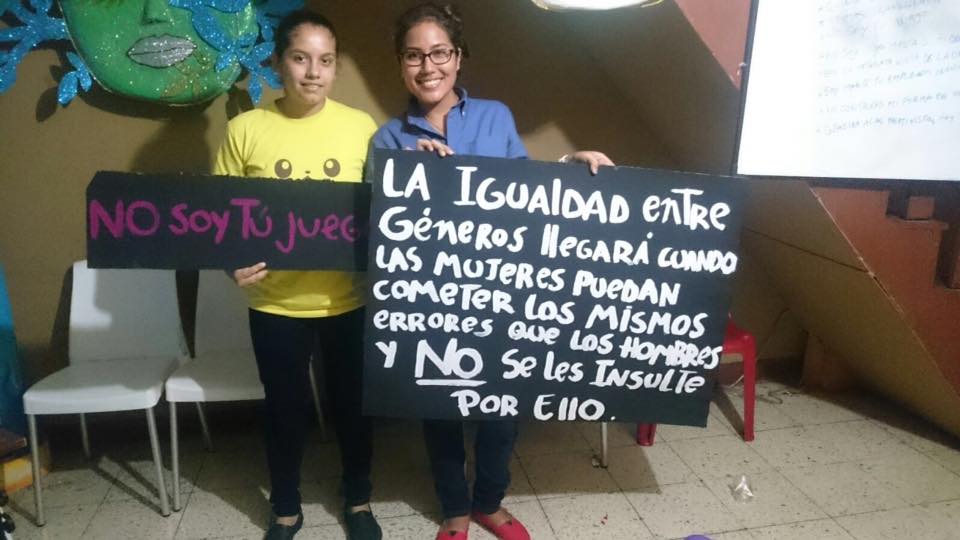 NO SOY TÚ JUEG
LA IGUALDAD ENTRE
GÉNEROS LLEGARÁ CUANDO
LAS MUJERES PUEDAN
COMETER LOS MISMOS
ERRORES QUE LOS HOMBRES
Y NO SE LES INSULTE
POR ELLO.